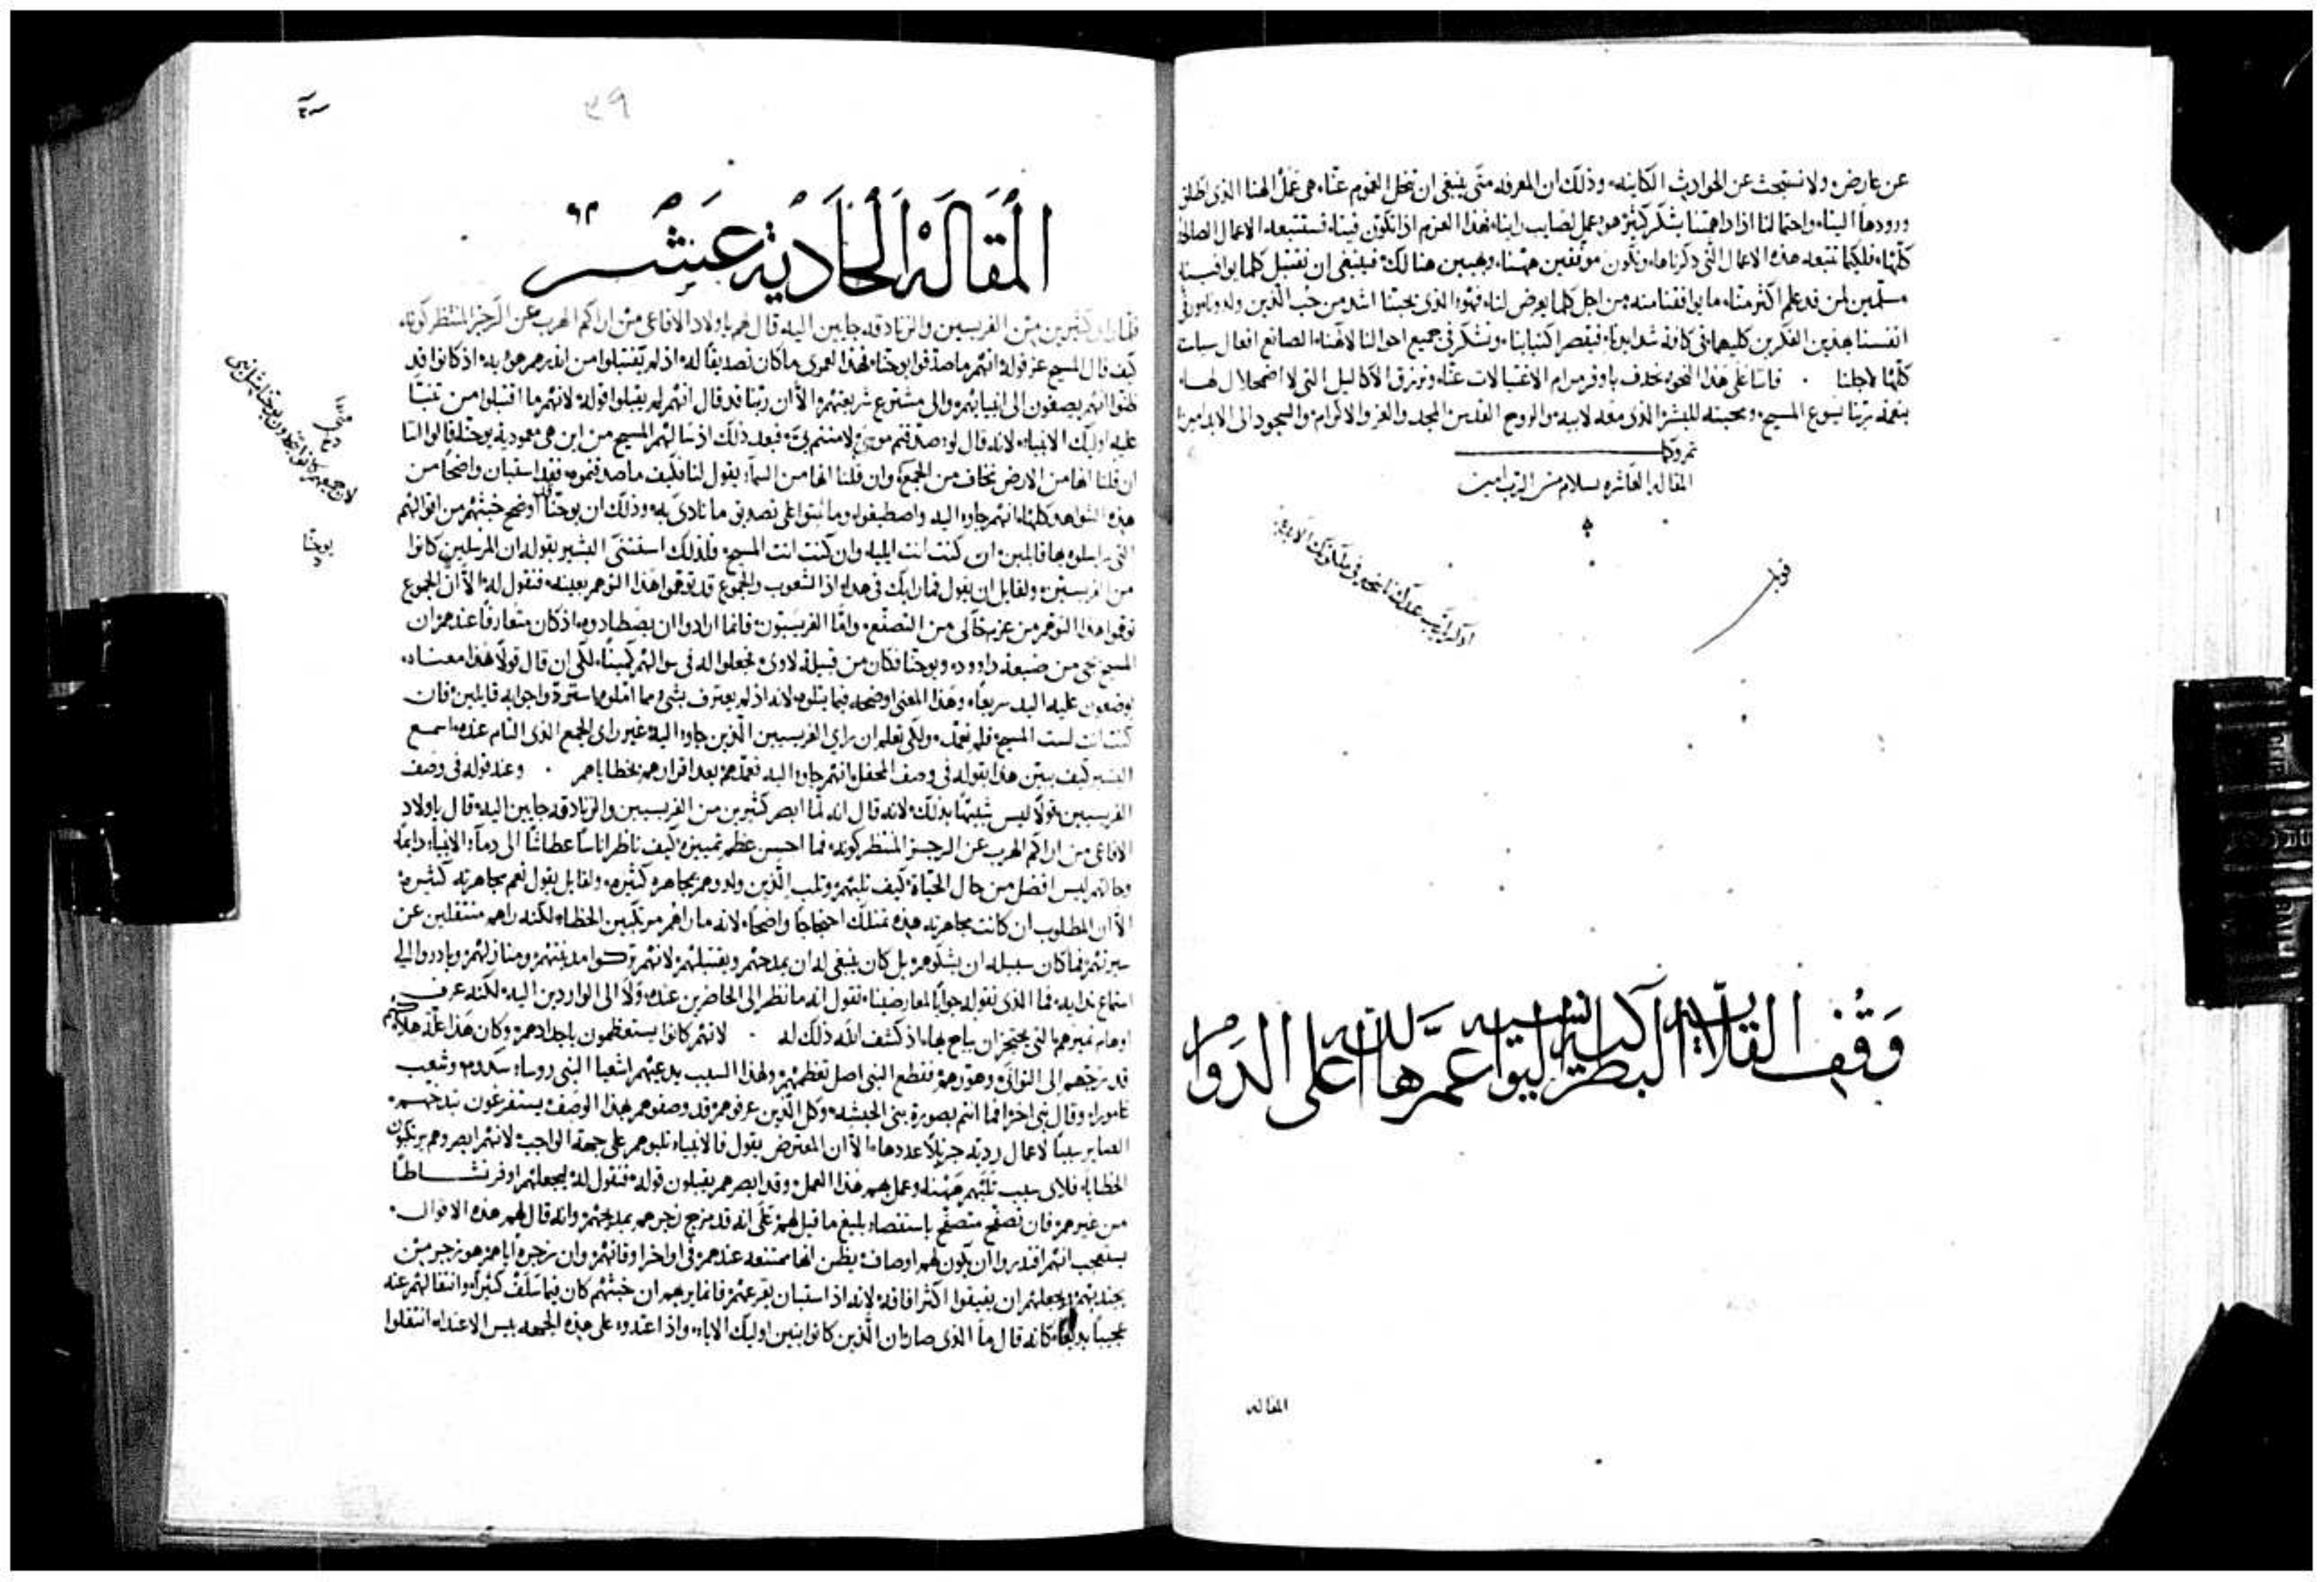 عن عارض ولا نستبحث عن الحوادث الكاينه وذلك ان المعرفه متى ينبغى ان تنحل الغموم عنا هى عمل الهنا الذى اطلق
ورودها الينا واحتمالنا اذا داهمتنا بشكر كثير هو عمل لصايب راينا فهذا العزم اذا تكون فينا فستتبعه الاعمال الصالحه
كلها فلكيما تتبعه هذه الاعمال التى ذكرناها ونكون موثقين ههنا وبهيين هنالك فينبغى ان نقتبل كلما يوافينا
مسلمين لمن قد علم اكثر منا ما يوافقنا منه من اجل كلما يعرض لنا فهو الذى يحبنا اشد من حب الذين ولدونا
انفسنا بهذين الفكرين كليهما فى كافة شدايدنا فيقصر اكتيابنا ونشكر فى جميع احوالنا لالهنا الصانع افعال سياسته
كلها لاجلنا فاننا على هذا النحو نحذف باوفر مرام الاغتيالات عنا ونرزق الاكاليل التى لا اضمحلال لها
بنعمة ربنا يسوع المسيح ومحبته للبشر الذى معه لابيه والروح القدس المجد والعز والاكرام والسجود الى الابد امين
تمت وكملت
المقاله العاشره بسلام من الرب امين
قوبل
اذكر يارب عبدك فى ملكوتك الابديه
وقف القلاية البطريركية اليوانسيه عمرها الله على الدوام
المقاله
٣٩
المقالة الحادية عشر
فلما راى كثيرين من الفريسيين والزنادقه جايين اليه قال لهم ياولاد الافاعى من اراكم الهرب عن الرجز المنتظر كونه
كيف قال المسيح عز قوله انهم ما صدقوا يوحنا فهذا لعمرى ما كان تصديقًا له اذ لم تقتبلوا من انذرهم هو به اذ كانوا قد
ظنوا انهم يصغون الى انبيايهم والى مشترع شريعتهم الا ان ربنا قد قال انهم لم يقبلوا قوله لانهم ما اقتبلوا من تنبا
عليه اوليك الانبياء لانه قال لو صدقتم موسى لامنتم بى فبعد ذلك اذ سالهم المسيح من اين هى معمودية يوحنا قالوا اننا
ان قلنا انها من الارض نخاف من الجمع وان قلنا انها من السماء يقول لنا فكيف ما صدقتموه فقد استبان واضحًا من
هذه الشواهد كلها انهم جاوا اليه واصطبغوا وما ثبتوا على تصديق ما نادى به وذلك ان يوحنا اوضح خبثهم من اقوالهم
التى راسلوه بها قايلين ان كنت انت ايليا وان كنت انت المسيح فلذلك استثنى البشير بقوله ان المرسلين كانوا
من الفريسيين ولقايل ان يقول فما رايك فى هذا اذا الشعوب والجموع قد توهموا هذا التوهم بعينه فنقول له الا ان الجموع
توهموا هذا التوهم من عزيمة خالى من التصنع واما الفريسيون فانما ارادوا ان يصطادوه اذ كان متعارفًا عندهم ان
المسيح يجى من ضيعة داوود ويوحنا فكان من قبيلة لاوى فجعلوا له فى سوالهم كمينًا لكى ان قال قولاً هذا معناه
يوضعون عليه اليد سريعًا وهذا المعنى اوضحه فيما يتلوه لانه اذ لم يعترف بشى مما املوه استردوا جوابه قايلين فان
كنت انت لست المسيح فلم تعمد ولكى تعلم ان راى الفريسيين الذين جاوا اليه غير راى الجمع الذى التام عنده اسمع
البشير كيف يبين هذا بقوله فى وصف المحفل انهم جاوا اليه فعمدهم بعد اقرارهم بخطاياهم وعند قوله فى وصف
الفريسيين قولاً ليس شبيهًا بذلك لانه قال انه لما ابصر كثيرين من الفريسيين والزنادقه جايين اليه قال ياولاد
الافاعى من اراكم الهرب عن الرجز المنتظر كونه فما احسن عظم تمييزه كيف ناظر اناسًا عطاشًا الى دماء الانبياء دايمًا
وحالهم ليس افضل من حال الحياة كيف ثلبهم وثلب الذين ولدوهم بمجاهره كثيره ولقايل يقول نعم مجاهرته كثيره
الا ان المطلوب ان كانت مجاهرته هذه تمتلك احتجاجًا واضحًا لانه ما راهم مرتكبين الخطاء لكنه راهم منتقلين عن
سيرتهم فما كان سبيله ان يشكوهم بل كان ينبغى له ان يمدحهم ويقتبلهم لانهم تركوا مدينتهم ومنازلهم وبادروا الى
استماع ندايه فما الذى نقوله جوابًا لمعارضينا نقول انه ما نظر الى الحاضرين عنده ولا الى الواردين اليه لكنه عرف
اوهام ضميرهم التى يحتجز ان يباح بها اذ كشف الله ذلك له لانهم كانوا يستعظمون باجدادهم وكان هذا علة هلاكهم
قد زجهم الى التوانى وهورهم فقطع النبى اصل تعظمهم ولهذا السبب يدعيهم اشعيا النبى روساء سدوم وشعب
غامورا وقال نبى اخر افما انتم بصورة بنى الحبشه وكل الذين عرفوهم قد وصفوهم بهذا الوصف يستفرغون تبذخهم
الصاير سببًا لاعمال رديه جزيلاً عددها الا ان المعترض يقول فالانبياء ثلبوهم على جهة الواجب لانهم ابصروهم يرتكبون
الخطايا فلاى سبب ثلبهم ههنا وعمل بهم هذا العمل وقد ابصرهم يقبلون قوله فنقول له ليجعلهم اوفر نشاطًا
من غيرهم فان تصفح متصفح باستقصاء بليغ ما قيل لهم على انه قد مزج زجرهم بمديحهم وانه قال لهم هذه الاقوال
يستعجب انهم اقتدروا ان يكون لهم اوصاف يظن انها ممتنعه عندهم فى اواخر اوقاتهم وان زجره اياهم هو زجر من
يجتذبهم ويجعلهم ان يفيقوا اكثر افاقه لانه اذ استبان يقرعهم فانما يريهم ان خبثهم كان فيما سلف كثيرًا وانتقالهم عنه
عجيبًا بديعًا كانه قال ما الذى صار ان الذين كانوا بنين اوليك الاباء واذ اغتدوا على هذه الجهه بيس الاغتداء انتقلوا